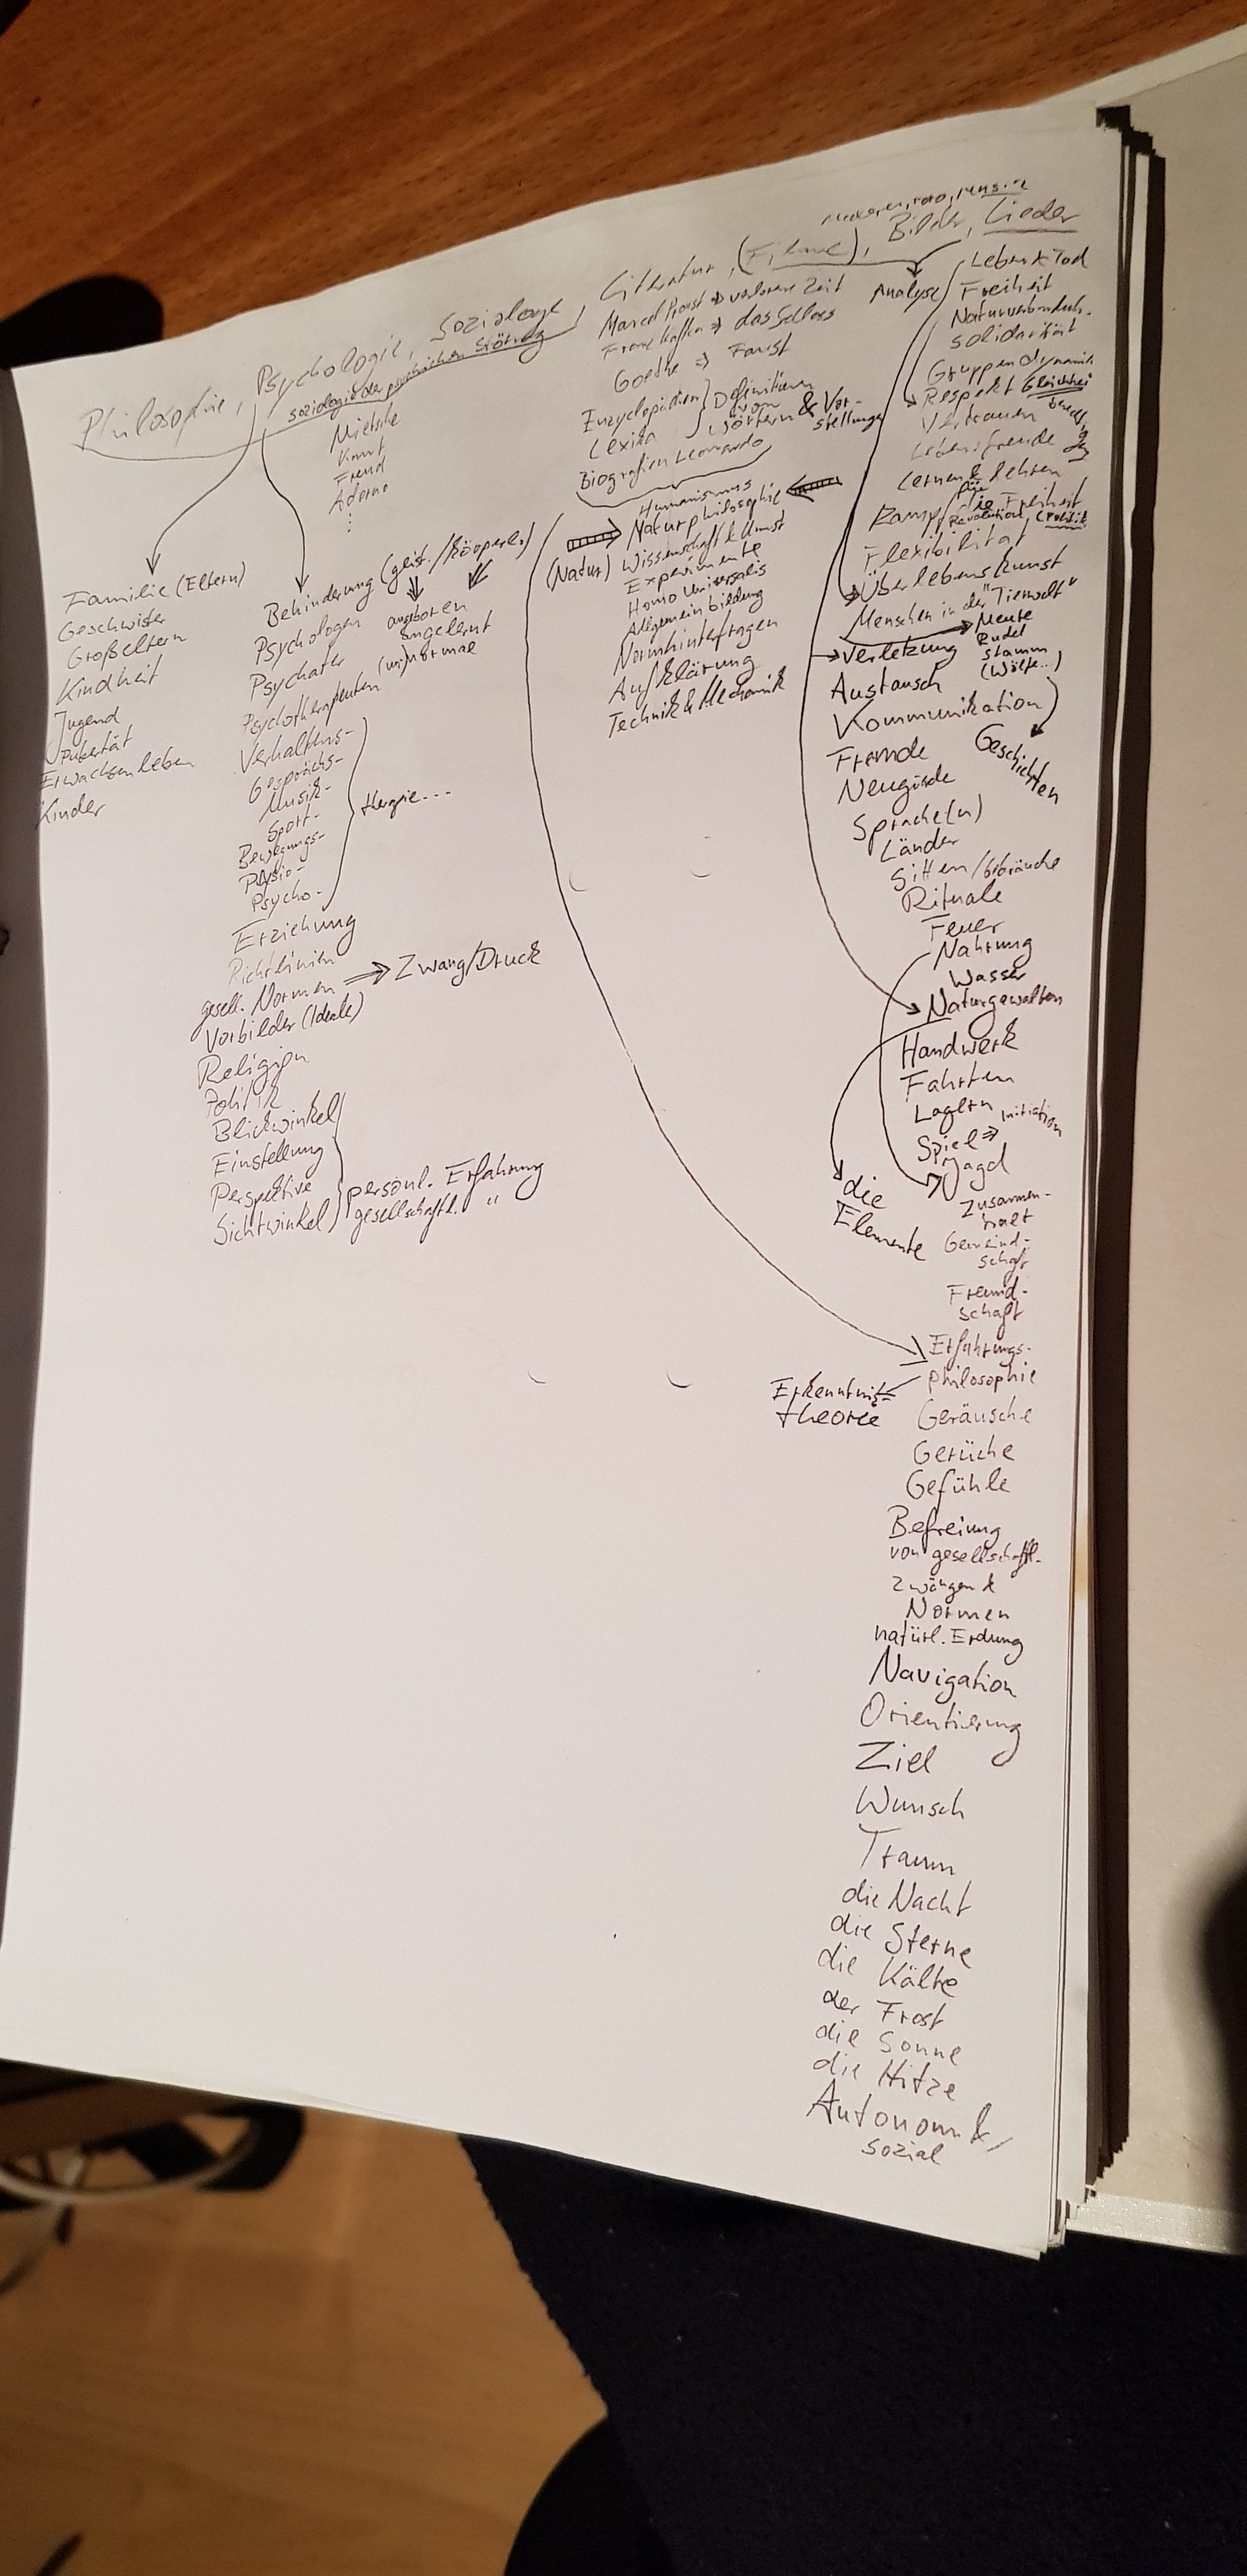 Philosophie, Psychologie, Soziologie, Literatur, (Filme), Bilder, Lieder
soziologie der psychischen Störung
Nietsche
Kant
Freud
Adorno
⋮
Familie (Eltern)
Geschwister
Großeltern
Kindheit
Jugend
Pubertät
Erwachsenleben
Kinder
Behinderung (geist./körperl.)
Psychologen
angeboren
angelernt
Psychater
(un)normal
Psychotherapeuten
Verhaltens-
Gesprächs-
Musik-
Sport-
Bewegungs-
Physio-
Psycho-
therapie...
Erziehung
Richtlinien
gesell. Normen ⇒ Zwang/Druck
Vorbilder (Ideale)
Religion
Politik
Blickwinkel
Einstellung
Perspektive
Sichtwinkel
persönl. Erfahrung
gesellschaftl. "
Marcel Proust ⇒ verlorene Zeit
Franz Kafka ⇒ das Schloss
Goethe ⇒ Faust
Enzyclopädien
Lexika
Definitionen
von
Wörtern & Vor-
stellungen
Biografien Leonardo
Humanismus
Naturphilosophie
(Natur) Wissenschaft & Kunst
Experimente
Homo Universalis
Allgemeinbildung
Normhinterfragen
Aufklärung
Technik & Mechanik
Analyse
Leben & Tod
Freiheit
Naturverbundenh.
Solidarität
Gruppendynamik
Respekt Gleichbe-
Vertrauen
Lebensfreude
Lernen & lehren
Kampf für die Freiheit
Revolution, (Politik
Flexibilität
Überlebenskunst
Menschen in der "Tierwelt"
Meute
Rudel
Stamm
(Wölfe..)
Verletzung
Austausch
Kommunikation
Geschichten
Fremde
Neugierde
Sprache(n)
Länder
Sitten/Gebräuche
Rituale
Feuer
Nahrung
Wasser
Naturgewalten
Handwerk
Fahrten
Lagern
Spiel ⇒ Initiation
Jagd
die
Elemente
Zusammen-
halt
Gemeind-
schaft
Freund-
schaft
Erfahrungs-
philosophie
Erkenntnis-
theorie
Geräusche
Gerüche
Gefühle
Befreiung
von gesellschaftl.
Zwängen &
Normen
natürl. Erdung
Navigation
Orientierung
Ziel
Wunsch
Traum
die Nacht
die Sterne
die Kälte
der Frost
die Sonne
die Hitze
Autonom &
sozial